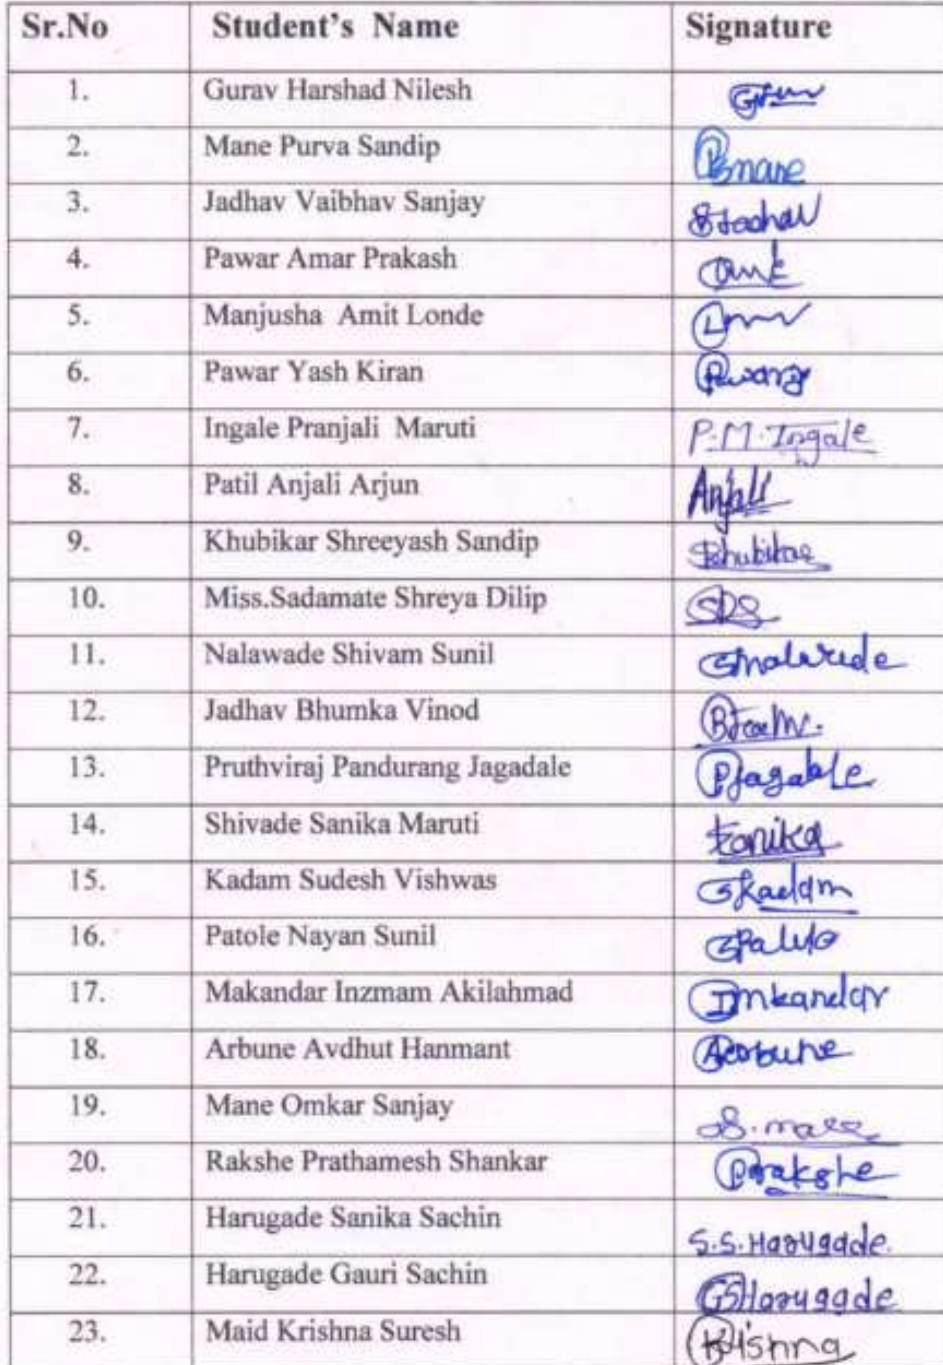 Sr.No Student's Name Signature
1. Gurav Harshad Nilesh
2. Mane Purva Sandip Pmane
3. Jadhav Vaibhav Sanjay
4. Pawar Amar Prakash
5. Manjusha Amit Londe
6. Pawar Yash Kiran
7. Ingale Pranjali Maruti P.M.Ingale
8. Patil Anjali Arjun Anjali
9. Khubikar Shreeyash Sandip
10. Miss.Sadamate Shreya Dilip SDS
11. Nalawade Shivam Sunil
12. Jadhav Bhumka Vinod
13. Pruthviraj Pandurang Jagadale
14. Shivade Sanika Maruti Sanika
15. Kadam Sudesh Vishwas Skadam
16. Patole Nayan Sunil
17. Makandar Inzmam Akilahmad Imkandar
18. Arbune Avdhut Hanmant
19. Mane Omkar Sanjay
20. Rakshe Prathamesh Shankar Prakshe
21. Harugade Sanika Sachin S.S.Harugade.
22. Harugade Gauri Sachin GSHarugade
23. Maid Krishna Suresh Krishna